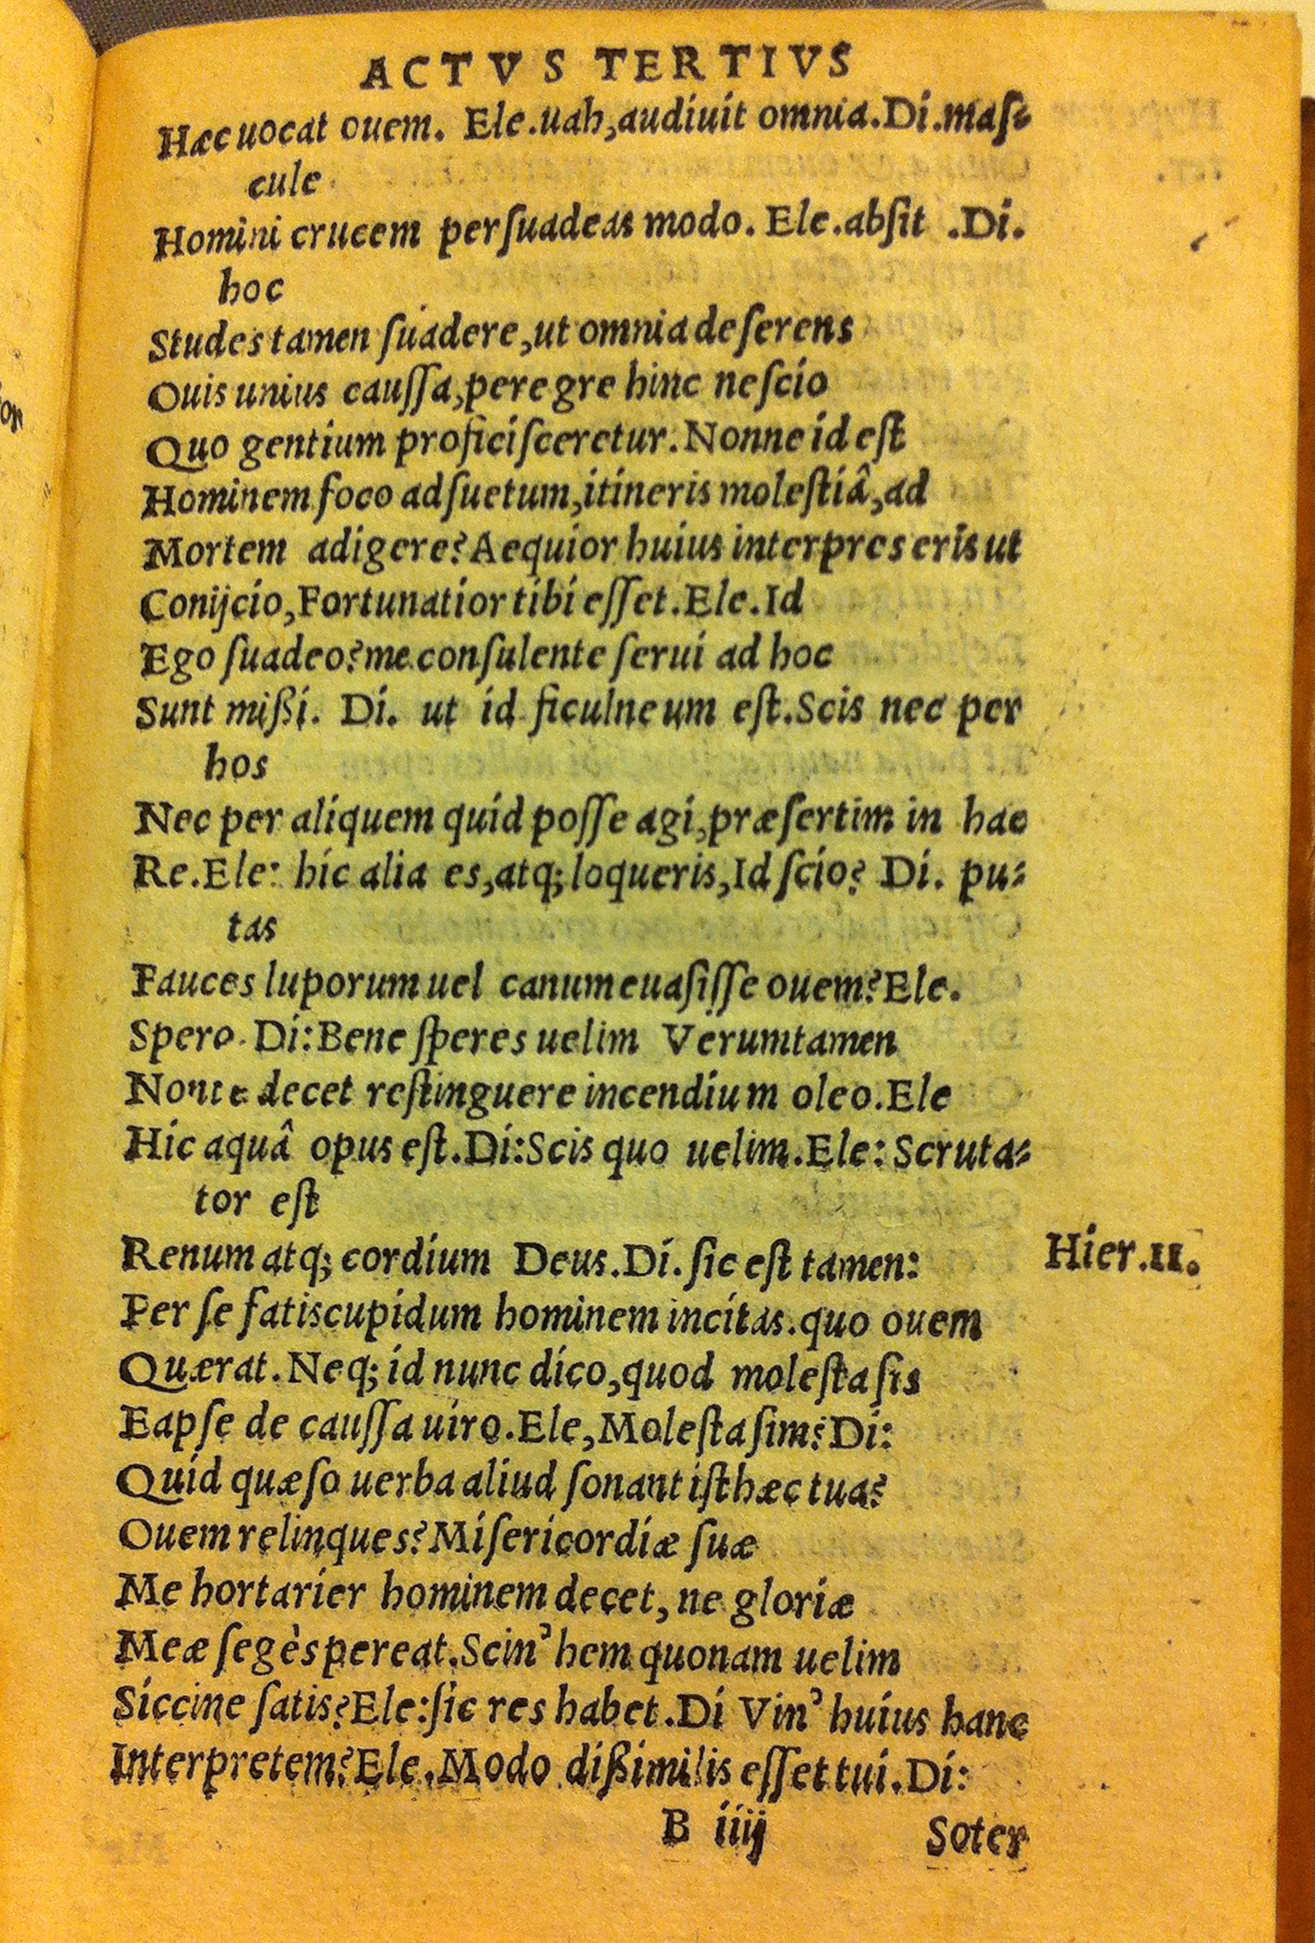 ACTVS TERTIVS
Hæc uocat ouem. Ele.uah,audiuit omnia.Di.maſ⸗
cule
Homini crucem perſuadeas modo. Ele.abſit .Di.
hoc
Studes tamen ſuadere,ut omnia deſerens
Ouis unius cauſſa,peregre hinc neſcio
Quo gentium proficiſceretur.Nonne id eſt
Hominem foco adſuetum,itineris moleſtiâ,ad
Mortem adigere?Aequior huius interpres eris ut
Conijcio,Fortunatior tibi eſſet.Ele.Id
Ego ſuadeo?me conſulente ſerui ad hoc
Sunt mißi. Di. ut id ficulneum eſt.Scis nec per
hos
Nec per aliquem quid poſſe agi,præſertim in hac
Re.Ele: hic alia es,atq; loqueris,Id ſcio? Di. pu⸗
tas
Fauces luporum uel canum euaſiſſe ouem?Ele.
Spero. Di:Bene ſperes uelim Verumtamen
Non te decet reſtinguere incendium oleo.Ele
Hic aquâ opus eſt.Di:Scis quo uelim.Ele:Scruta⸗
tor eſt
Renum atq; cordium Deus.Di.ſic eſt tamen:
Hier.11.
Per ſe fatis cupidum hominem incitas.quo ouem
Quærat.Neq; id nunc dico,quod moleſta ſis
Eapſe de cauſſa uiro.Ele,Moleſta ſim?Di:
Quid quæſo uerba aliud ſonant iſthæc tua?
Ouem relinques?Miſericordiæ ſuæ
Me hortarier hominem decet, ne gloriæ
Meæ ſegès pereat.Scin' hem quonam uelim
Siccine ſatis?Ele:ſic res habet.Di Vin' huius hanc
Interpretem?Ele.Modo dißimilis eſſet tui.Di:
B iiij
Soter